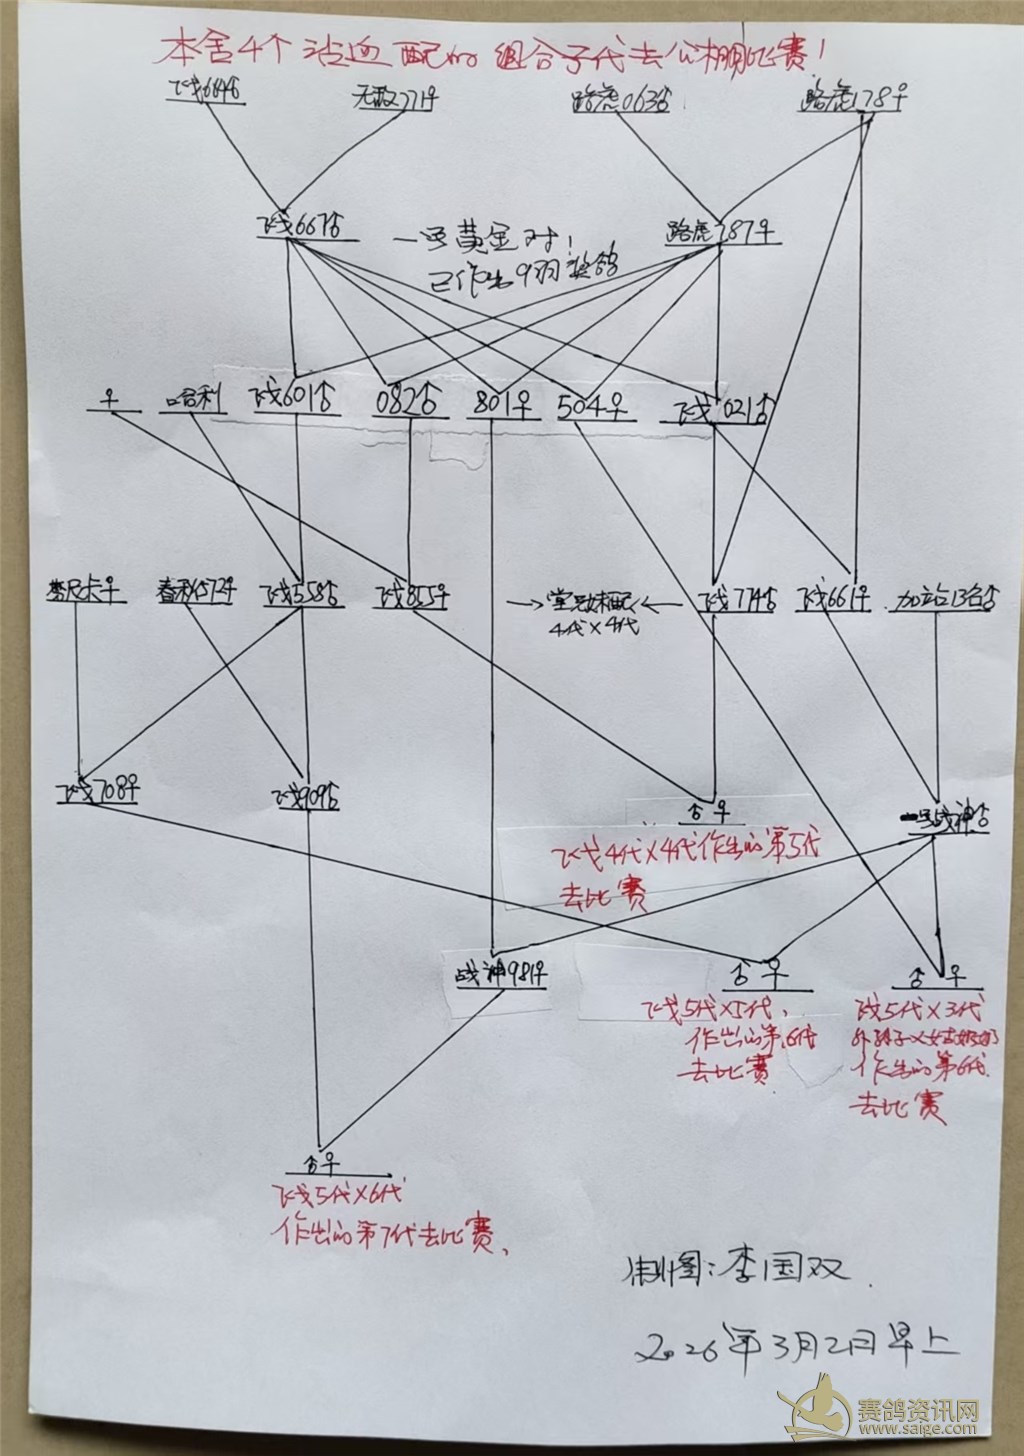 本舍4个沾血配的组合子代去公棚比赛！
飞戈664♂ 无敌771♀ 路虎063♂ 路虎178♀
飞戈667♂ 一号黄金对！ 路虎787♀
已作出9羽奖鸽
♀ 哈利 飞戈601♂ 082♂ 801♀ 504♀ 飞戈021♂
詹尼卡♀ 春秋572♀ 飞戈558♂ 飞戈855♀ →堂兄妹配← 飞戈774♂ 飞戈661♀ 加站13名♂
4代×4代
飞戈708♀ 飞戈909♂ ♂♀ 一号战神♂
飞戈4代×4代作出的第5代
去比赛
战神981♀ ♂♀ ♂♀
飞戈5代×5代、
作出的第6代
去比赛
飞戈5代×3代
外孙子×姑奶奶
作出的第6代
去比赛
♂♀
飞戈5代×6代
作出的第7代去比赛、
制图:李国双
2026年3月2日早上
赛鸽资讯网
www.saige.com